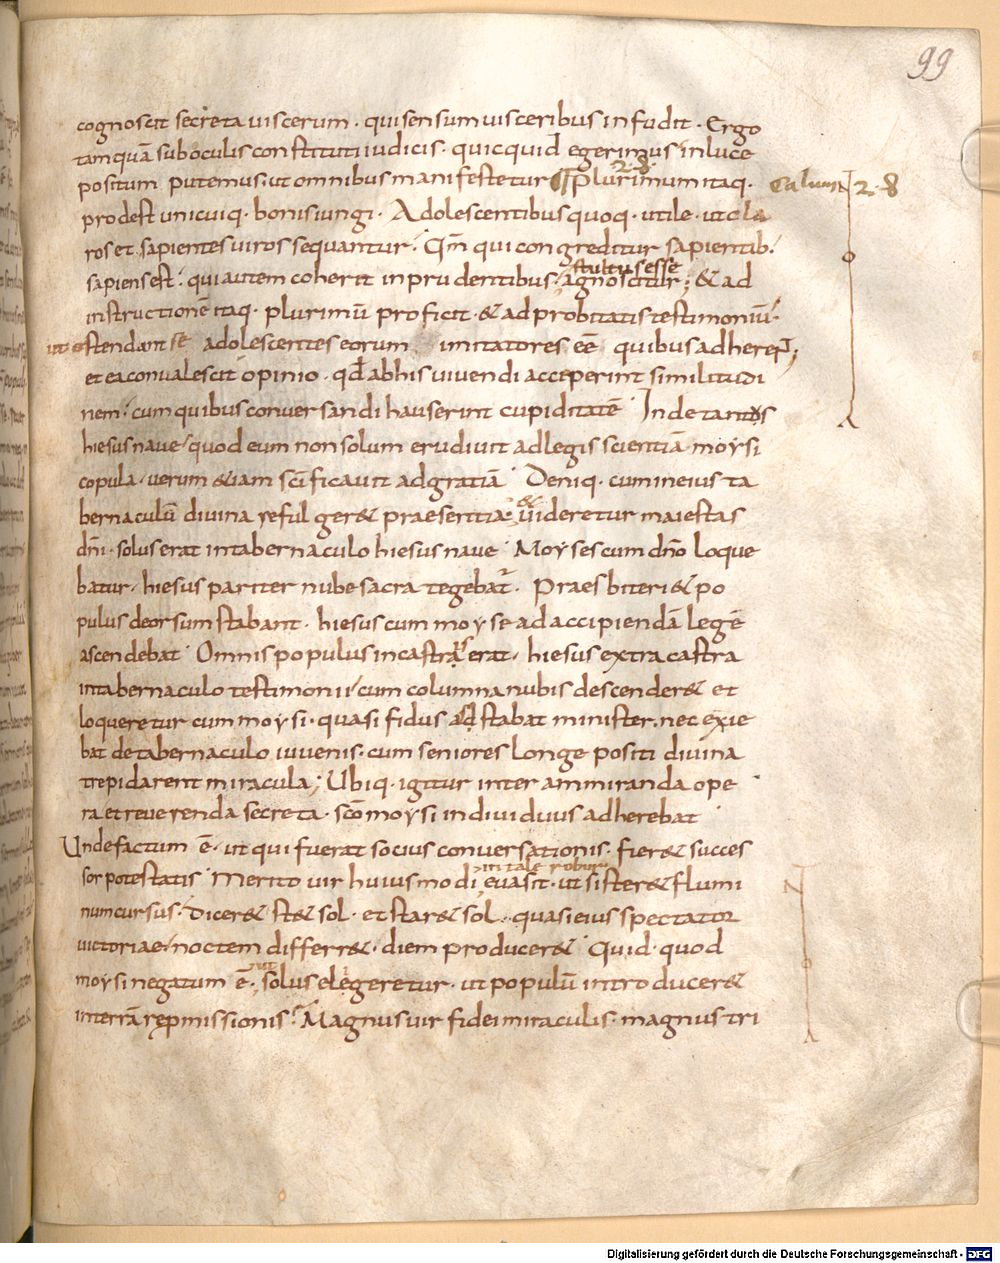 99
cognoscit secreta viscerum · qui sensum visceribus infudit · Ergo
tamquā sub oculis constituti iudicis · quicquid egerimus in luce
positum putemus · ut omnibus manifestetur Plurimum itaq·
prodest unicuiq· bonis iungi · Adolescentibus quoq· utile · ut cla
ros et sapientes viros sequantur · Qm̄ qui congreditur sapientib·
stultus esse
sapiens est · qui autem coherit inprudentibus · agnoscitur ; & ad
instructionē itaq· plurimū proficit · & ad probitatis testimoniū ·
ut ostendant se adolescentes eorum imitatores eē quibus adherent ;
et ea convalescit opinio · qđ ab his vivendi acceperint similitudi
nem · cum quibus conversandi hauserint cupiditatē Inde tantus
hiesus nave · quod eum non solum erudivit ad legis scientiā moysi
copula · verum &iam sc̄ificavit ad gratiā Deniq· cum in eius ta
&
bernaculū divina refulger& praesentia · videretur maiestas
dn̄i · solus erat in tabernaculo hiesus nave · Moyses cum dn̄o loque
batur · hiesus pariter nube sacra tegebat̄ · Praesbiteri & po
pulus deorsum stabant · hiesus cum moyse ad accipiendā legē
ascendebat Omnis populus in castris erat · hiesus extra castra
in tabernaculo testimonii · cum columna nubis descender& et
loqueretur cum moysi · quasi fidus adstabat minister · nec exie
bat de tabernaculo iuvenis · cum seniores longe positi divina
trepidarent miracula ; Ubiq· igitur inter ammiranda ope
ra et reverenda secreta · sc̄o moysi individuus adherebat
Unde factum ē · ut qui fuerat socius conversationis · fier& succes
in tale robur
sor potestatis Merito vir huiusmodi evasit · ut sister& flumi
num cursus · Dicer& st& sol · et star& sol · quasi eius spectator
victoriae · noctem differr& · diem producer& Quid · quod
moysi negatum ē · solus eligeretur · ut populū introducer&
in terrā repmissionis · Magnus vir fidei miraculis · magnus tri
Digitalisierung gefördert durch die Deutsche Forschungsgemeinschaft - DFG